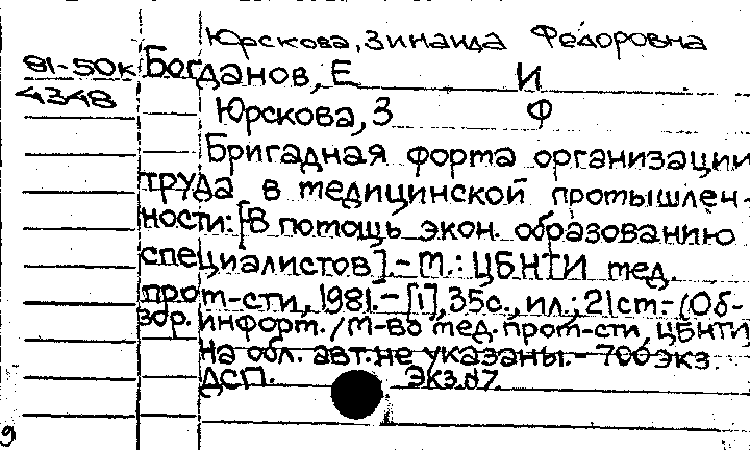 Юрскова, Зинаида Федоровна
81-50к Богданов, Е И
4348
Юрскова, З Ф
Бригадная форма организации
труда в медицинской промышлен-
ности: [В помощь экон. образованию
специалистов]. - М.: ЦБНТИ мед.
пром-сти, 1981. - [1], 35с., ил.; 21см. - (Об-
зор. информ. / М-во мед. пром-сти, ЦБНТИ
На обл. авт. не указаны. - 700 экз.
ДСП. Экз.87.
9